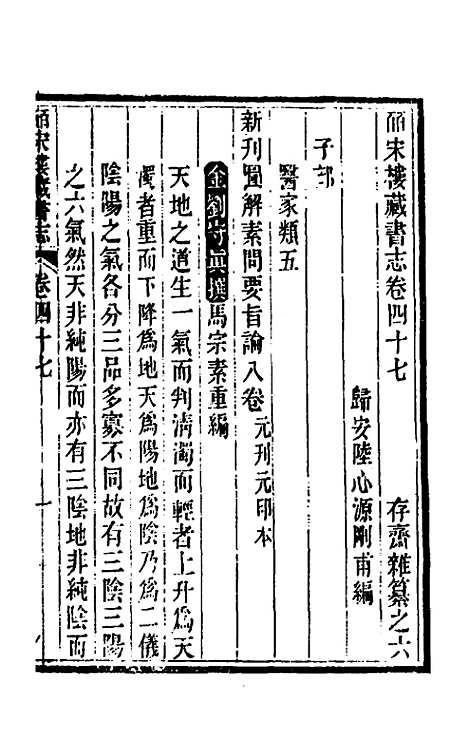 皕宋樓藏書志卷四十七　存齋雜纂之六
歸安陸心源剛甫編
子部
醫家類五
新刊圖解素問要旨論八卷　元刊元印本
金劉守眞撰馬宗素重編
天地之道生一氣而判清濁而輕者上升爲天
濁者重而下降爲地天爲陽地爲陰乃爲二儀
陰陽之氣各分三品多寡不同故有三陰三陽
之六氣然天非純陽而亦有三陰地非純陰而
皕宋樓藏書志　卷四十七　一